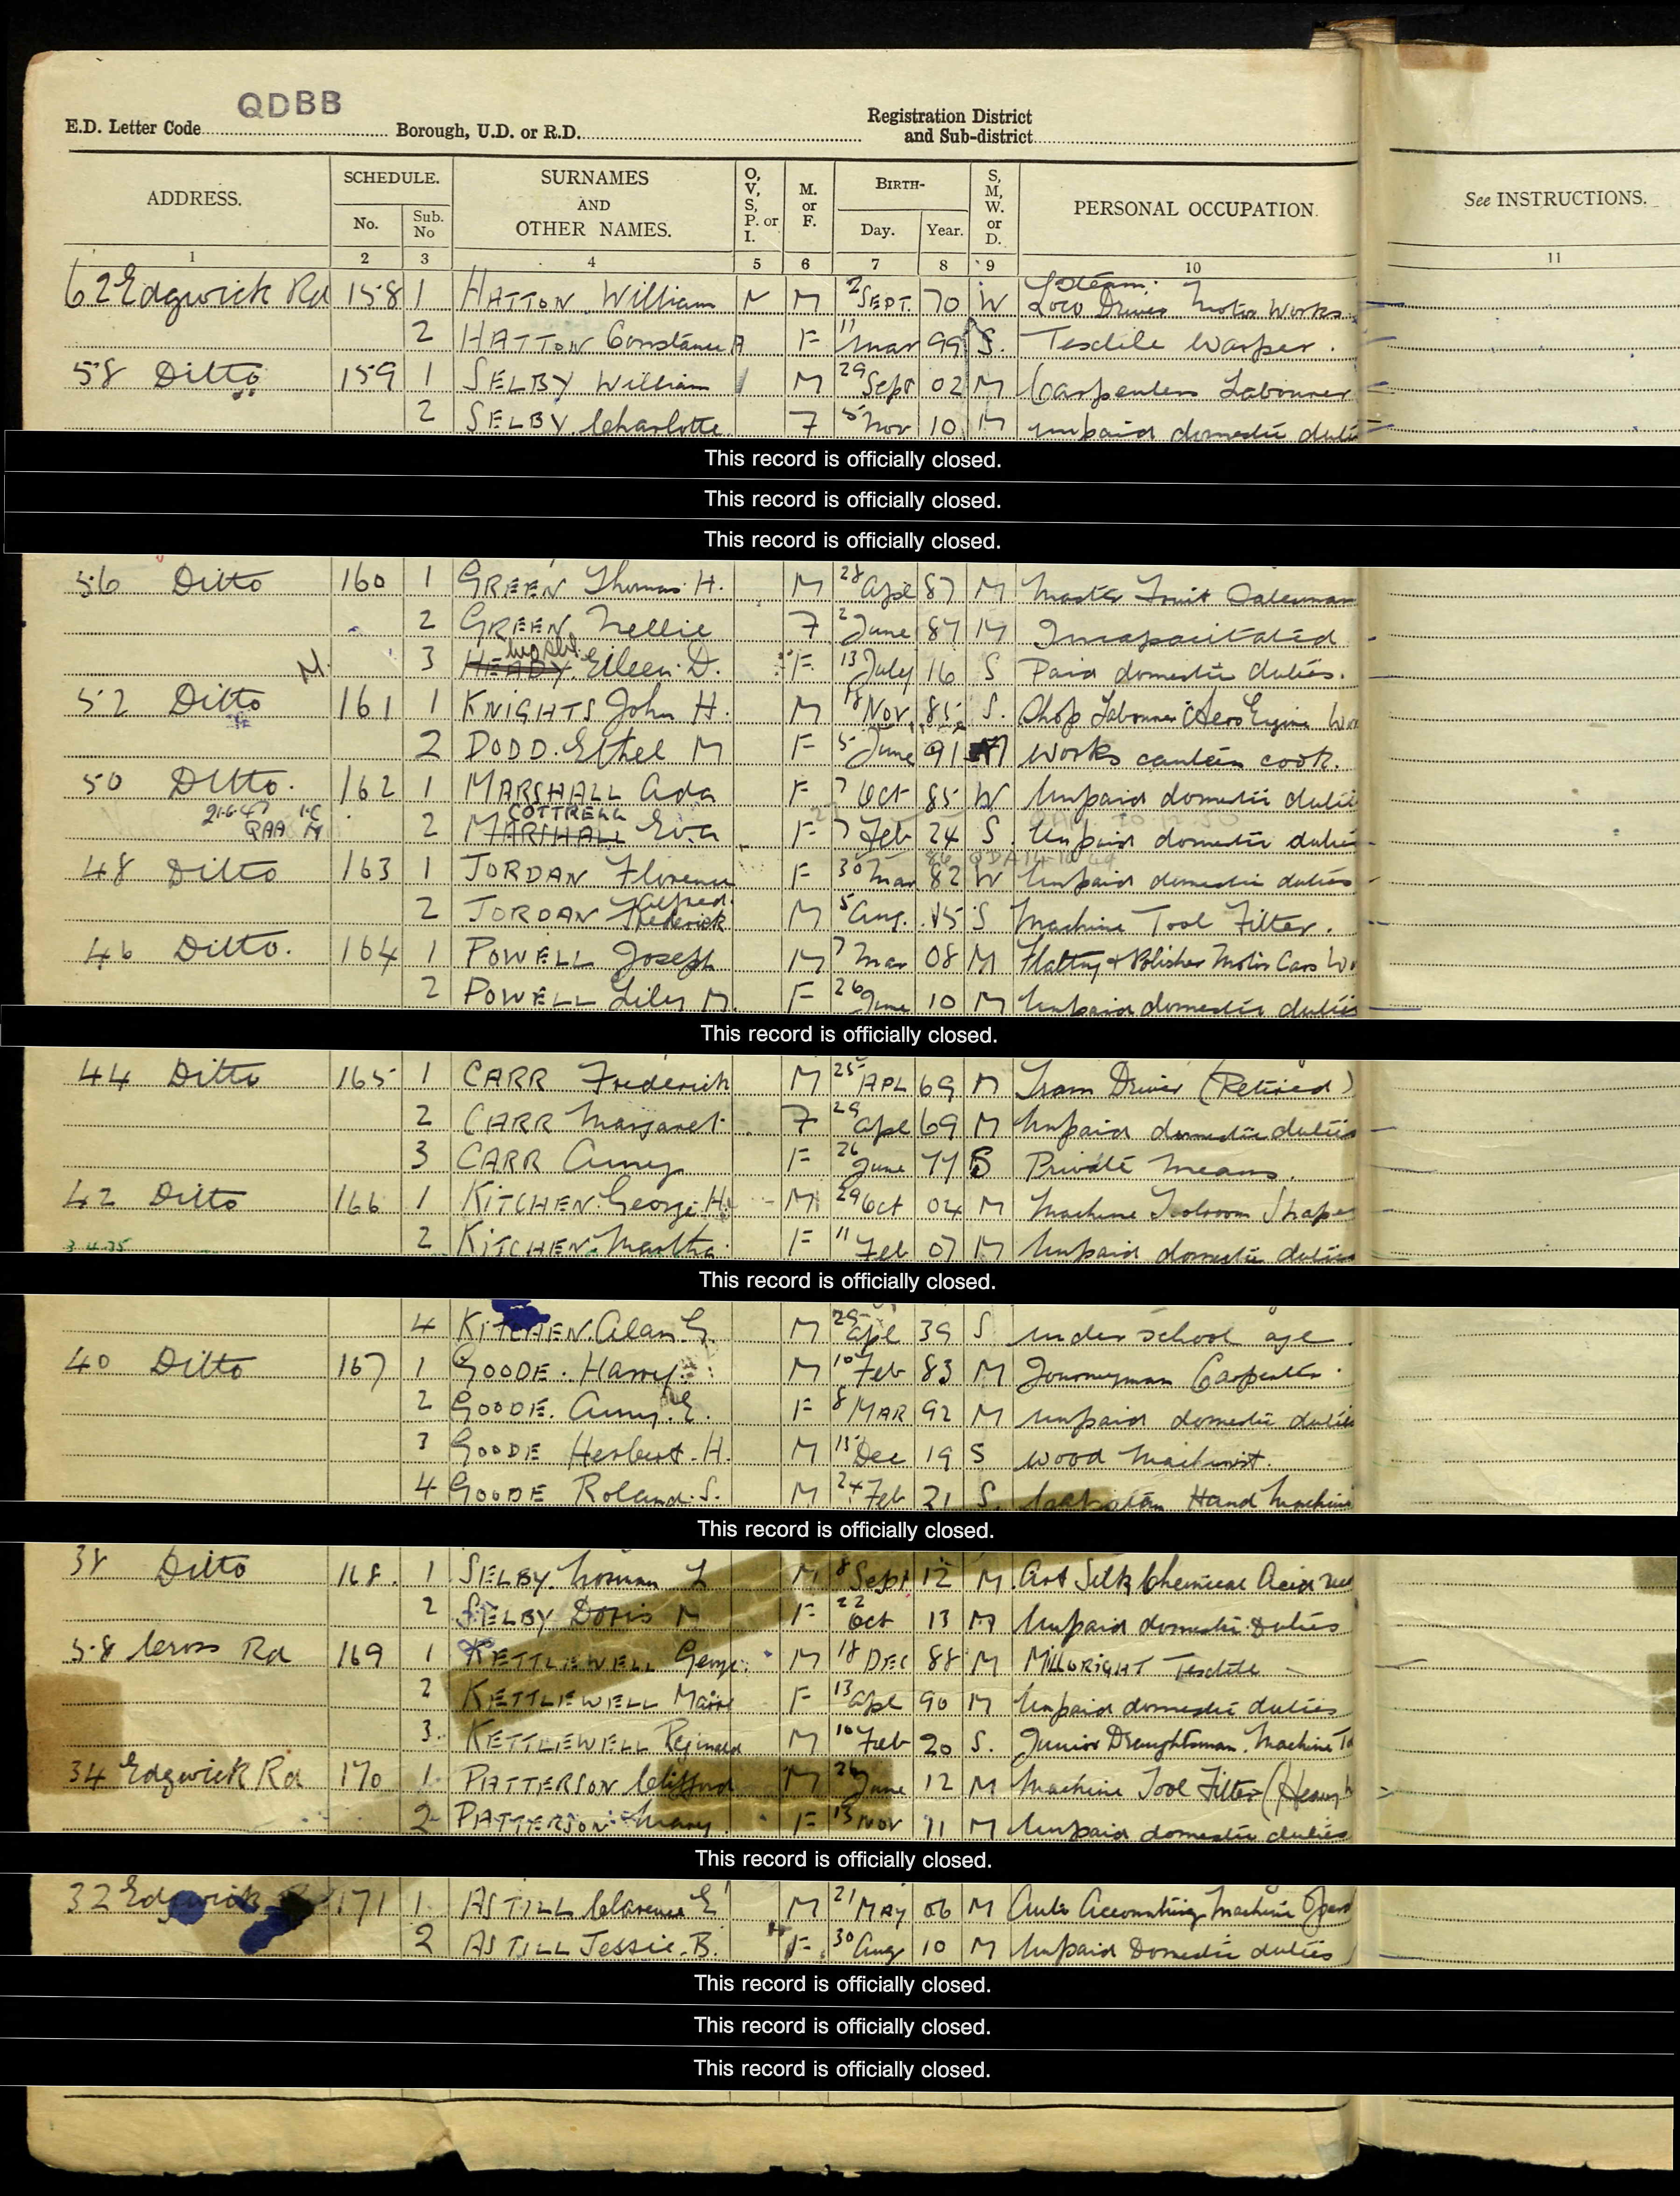 QDBB
E.D. Letter Code Borough, U.D. or R.D. Registration District
and Sub-district
ADDRESS. SCHEDULE. No. Sub. No SURNAMES AND OTHER NAMES. O, V, S, P. or I. M. or F. BIRTH- Day. Year. S, M, W. or D. PERSONAL OCCUPATION. See INSTRUCTIONS.
1 2 3 4 5 6 7 8 9 10 11
62 Edgwick Rd 158 1 HATTON William M 2 SEPT. 70 W Steam Loco Driver Motor Works
2 HATTON Constance A F 17 Mar 99 S. Textile Warper.
58 Ditto 159 1 SELBY William M 29 Sept 02 M Carpenters Labourer
2 SELBY. Charlotte F 5 Nov 10 M unpaid domestic duties
This record is officially closed.
This record is officially closed.
This record is officially closed.
56 Ditto 160 1 GREEN Thomas H. M 28 Apl 87 M Master Fruit Salesman
2 GREEN Nellie F 2 June 87 M Incapacitated
M. 3 HEADY Eileen D. F 13 July 16 S Paid domestic duties.
52 Ditto 161 1 KNIGHTS John H. M 18 Nov 85 S. Shop Labourer Aero Engine
2 DODD. Ethel M F 5 June 91 works canteen cook.
50 Ditto. 162 1 MARSHALL Ada F 7 Oct 85 W Unpaid domestic duties
21.6.47 QAA M COTTRELL
2 MARSHALL Eva F 7 Feb 24 S. Unpaid domestic duties
48 Ditto 163 1 JORDAN Florence F 30 Mar 82 W Unpaid domestic duties
2 JORDAN Alfred. Frederick M 5 Aug. 15 S Machine Tool Fitter.
46 Ditto. 164 1 POWELL Joseph M 7 Mar 08 M Flatting & Polisher Motor Cars
2 POWELL Lily M. F 26 June 10 M Unpaid domestic duties
This record is officially closed.
44 Ditto 165 1 CARR Frederick M 25 APL 69 M Tram Driver (Retired)
2 CARR Margaret F 29 Apl 69 M Unpaid domestic duties
3 CARR Amey F 26 June 77 S Private Means.
42 Ditto 166 1 KITCHEN. George H. M 29 Oct 04 M Machine Toolroom Shaper
3.4.35 2 KITCHEN. Martha F 11 Feb 07 M Unpaid domestic duties
This record is officially closed.
4 KITCHEN. Alan G. M 29 Apl 39 S under school age
40 Ditto 167 1 GOODE. Harry M 10 Feb 83 M Journeyman Carpenter
2 GOODE. Amy. E. F 8 MAR 92 M unpaid domestic duties
3 GOODE Herbert. H. M 15 Dec 19 S wood machinist.
4 GOODE Roland. S. M 24 Feb 21 S. Capstan Hand Machine
This record is officially closed.
38 Ditto 168. 1 SELBY. Norman L M 8 Sept 12 M. Art Silk Chemical Acid
2 SELBY Doris M F 22 Oct 13 M Unpaid domestic Duties
58 Cross Rd 169 1 KETTLEWELL George. M 18 DEC 88 M MILLWRIGHT Textile
2 KETTLEWELL F 13 Apl 90 M Unpaid domestic duties
3. KETTLEWELL Reginald M 10 Feb 20 S. Junior Draughtsman. Machine
34 Edgwick Rd 170 1. PATTERSON Clifford M 26 June 12 M Machine Tool Fitter (Heavy
2 PATTERSON Mary. F 13 NOV 11 M Unpaid domestic duties
This record is officially closed.
32 Edgwick 171 1. ASTILL Clarence E M 21 MAY 06 M Auto Accounting Machine
2 ASTILL Jessie. B. F. 30 Aug 10 M Unpaid Domestic duties
This record is officially closed.
This record is officially closed.
This record is officially closed.